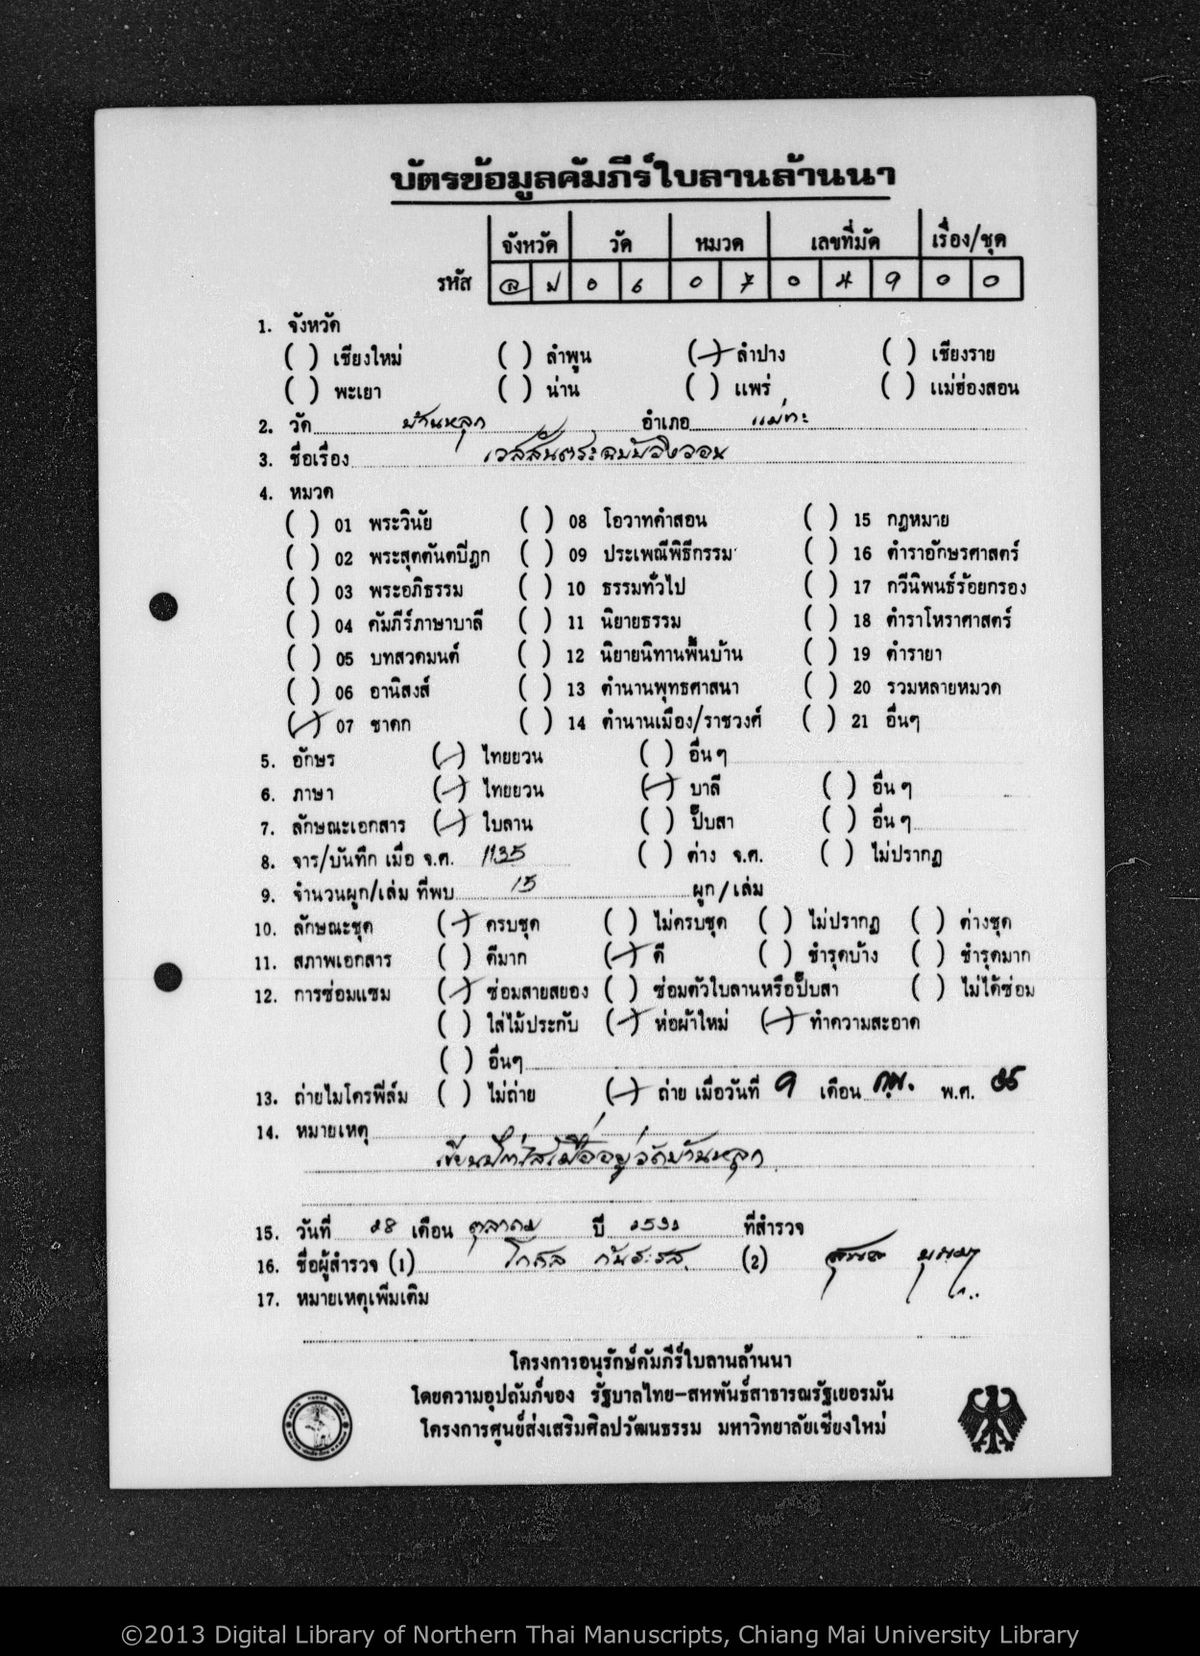 บัตรข้อมูลคัมภีร์ใบลานล้านนา
จังหวัด วัด หมวด เลขที่มัด เรื่อง/ชุด
รหัส ล ป 0 6 0 7 0 4 9 0 0
1. จังหวัด
( ) เชียงใหม่ ( ) ลำพูน (/) ลำปาง ( ) เชียงราย
( ) พะเยา ( ) น่าน ( ) แพร่ ( ) แม่ฮ่องสอน
2. วัด บ้านหลุก อำเภอ แม่ทะ
3. ชื่อเรื่อง เวสสันตระฉบับวิงวอน
4. หมวด
( ) 01 พระวินัย ( ) 08 โอวาทคำสอน ( ) 15 กฎหมาย
( ) 02 พระสุตตันตปิฎก ( ) 09 ประเพณีพิธีกรรม ( ) 16 ตำราอักษรศาสตร์
( ) 03 พระอภิธรรม ( ) 10 ธรรมทั่วไป ( ) 17 กวีนิพนธ์ร้อยกรอง
( ) 04 คัมภีร์ภาษาบาลี ( ) 11 นิยายธรรม ( ) 18 ตำราโหราศาสตร์
( ) 05 บทสวดมนต์ ( ) 12 นิยายนิทานพื้นบ้าน ( ) 19 ตำรายา
( ) 06 อานิสงส์ ( ) 13 ตำนานพุทธศาสนา ( ) 20 รวมหลายหมวด
(/) 07 ชาดก ( ) 14 ตำนานเมือง/ราชวงศ์ ( ) 21 อื่นๆ
5. อักษร (/) ไทยยวน ( ) อื่น ๆ
6. ภาษา (/) ไทยยวน (/) บาลี ( ) อื่น ๆ
7. ลักษณะเอกสาร (/) ใบลาน ( ) ปั๊บสา ( ) อื่น ๆ
8. จาร/บันทึก เมื่อ จ.ศ. 1135 ( ) ต่าง จ.ศ. ( ) ไม่ปรากฏ
9. จำนวนผูก/เล่ม ที่พบ 15 ผูก/เล่ม
10. ลักษณะชุด (/) ครบชุด ( ) ไม่ครบชุด ( ) ไม่ปรากฏ ( ) ต่างชุด
11. สภาพเอกสาร ( ) ดีมาก (/) ดี ( ) ชำรุดบ้าง ( ) ชำรุดมาก
12. การซ่อมแซม (/) ซ่อมสายสยอง ( ) ซ่อมตัวใบลานหรือปั๊บสา ( ) ไม่ได้ซ่อม
( ) ใส่ไม้ประกับ (/) ห่อผ้าใหม่ (/) ทำความสะอาด
( ) อื่นๆ
13. ถ่ายไมโครฟิล์ม ( ) ไม่ถ่าย (/) ถ่าย เมื่อวันที่ 9 เดือน กพ. พ.ศ. 35
14. หมายเหตุ
เขียนปีกัดไส้เมื่ออยู่วัดบ้านหลุก
15. วันที่ 28 เดือน ตุลาคม ปี 2532 ที่สำรวจ
16. ชื่อผู้สำรวจ (1) โกศล (2)
17. หมายเหตุเพิ่มเติม
โครงการอนุรักษ์คัมภีร์ใบลานล้านนา
โดยความอุปถัมภ์ของ รัฐบาลไทย-สหพันธ์สาธารณรัฐเยอรมัน
โครงการศูนย์ส่งเสริมศิลปวัฒนธรรม มหาวิทยาลัยเชียงใหม่
©2013 Digital Library of Northern Thai Manuscripts, Chiang Mai University Library